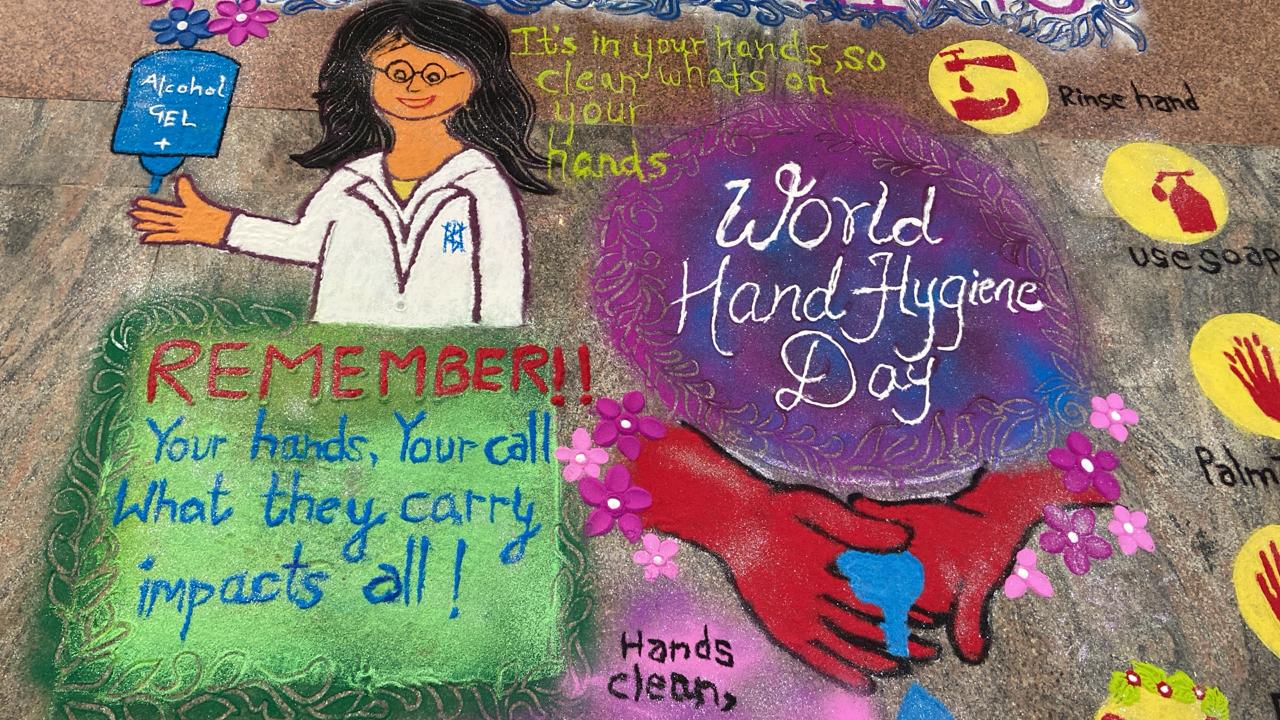 It's in your hands, so
clean whats on
your
hands
Alcohol
GEL
+
World
Hand Hygiene
Day
REMEMBER!!
Your hands, Your call
What they carry
impacts all!
Rinse hand
use soap
Palm
Hands
clean,